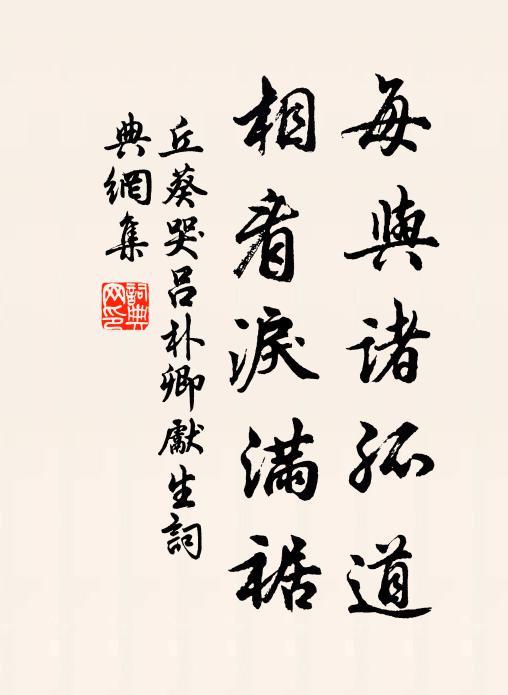 每與諸孤道
相看淚滿裾
丘葵哭呂朴卿獻生詞
典網集
詞典网印